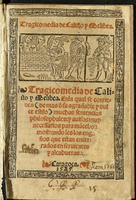 Tragicomedia de Calisto y Melibea.
Tragicomedia de Cali-
sto y Melibea. En la qual se contie-
nen (de mas de su agradable y dul
ce estilo) muchas sentencias
philosophales: y auisos muy
necessarios para mãcebos:
mostrando les los enga-
ños que estan encer-
rados en siruientes
y alcahuetas.